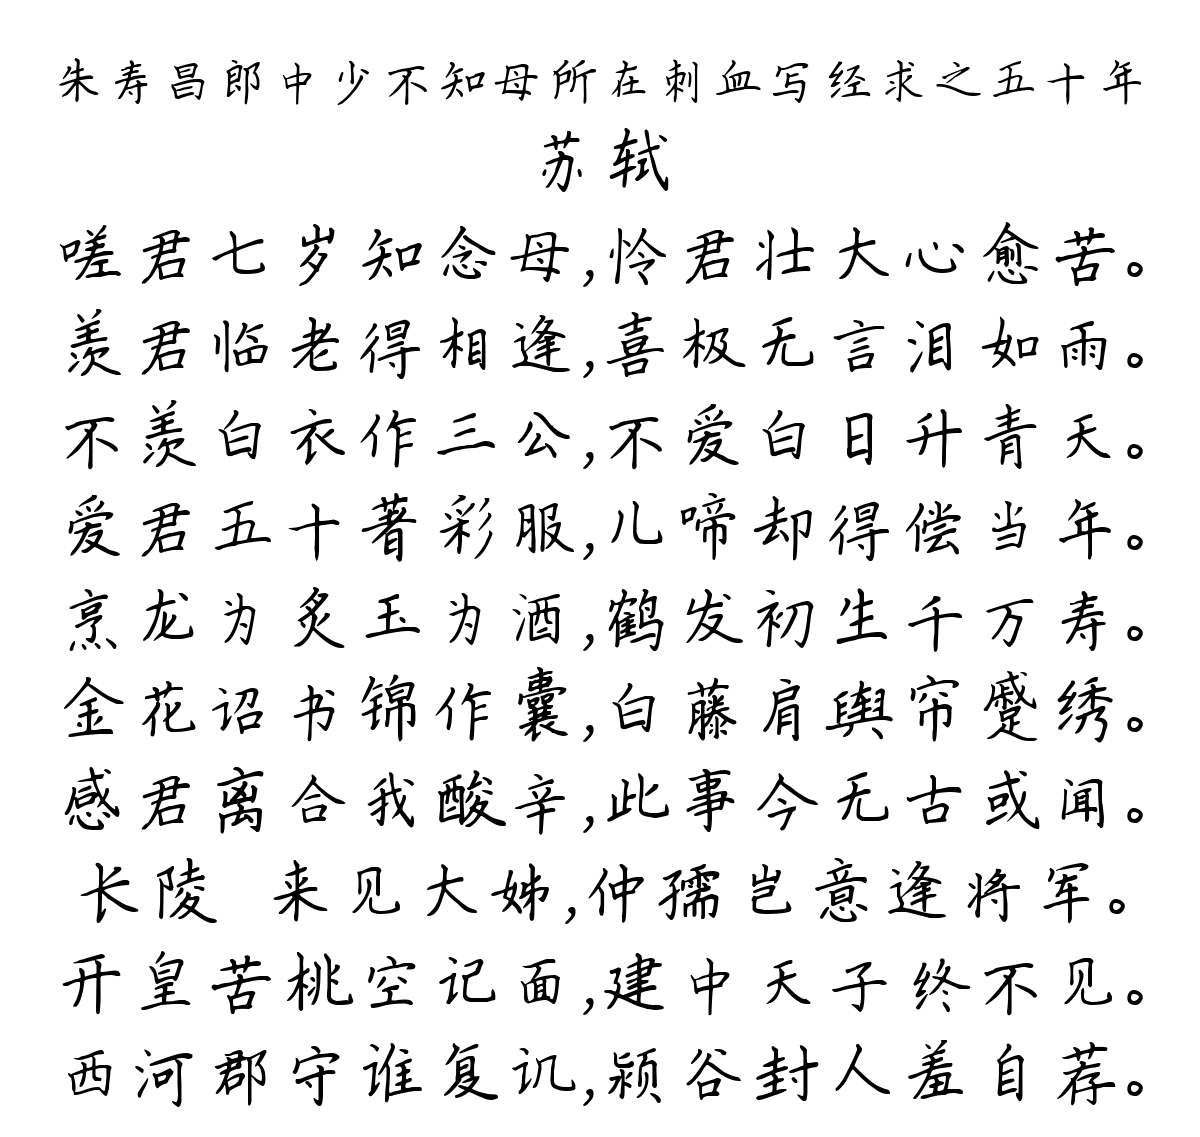 朱寿昌郎中少不知母所在刺血写经求之五十年
苏轼
嗟君七岁知念母,怜君壮大心愈苦。
羡君临老得相逢,喜极无言泪如雨。
不羡白衣作三公,不爱白日升青天。
爱君五十著彩服,儿啼却得偿当年。
烹龙为炙玉为酒,鹤发初生千万寿。
金花诏书锦作囊,白藤肩舆帘蹙绣。
感君离合我酸辛,此事今无古或闻。
长陵 来见大姊,仲孺岂意逢将军。
开皇苦桃空记面,建中天子终不见。
西河郡守谁复讥,颍谷封人羞自荐。